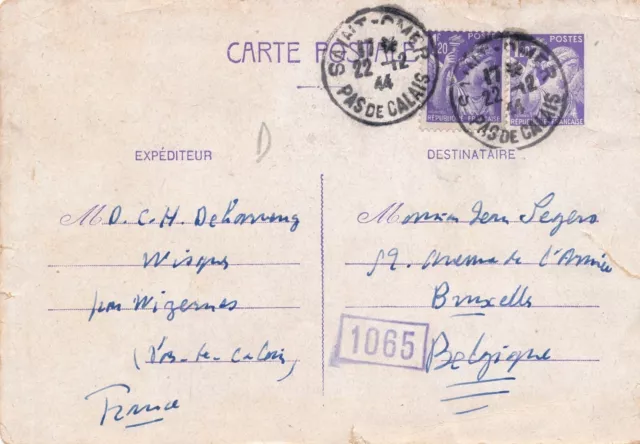 CARTE POSTALE
SAINT-OMER
17 *
22 -12
44
PAS DE CALAIS
1,20
RÉPUBLIQUE FRANÇAISE
SAINT-OMER
17 *
22 -12
44
PAS DE CALAIS
POSTES
RÉPUBLIQUE FRANÇAISE
D
EXPÉDITEUR
M D. C. H.
Wisques
par Wizernes
(Pas-de-Calais)
France
DESTINATAIRE
Monsieur Jean Segers
59. Avenue de l'Armée
Bruxelles
Belgique
1065